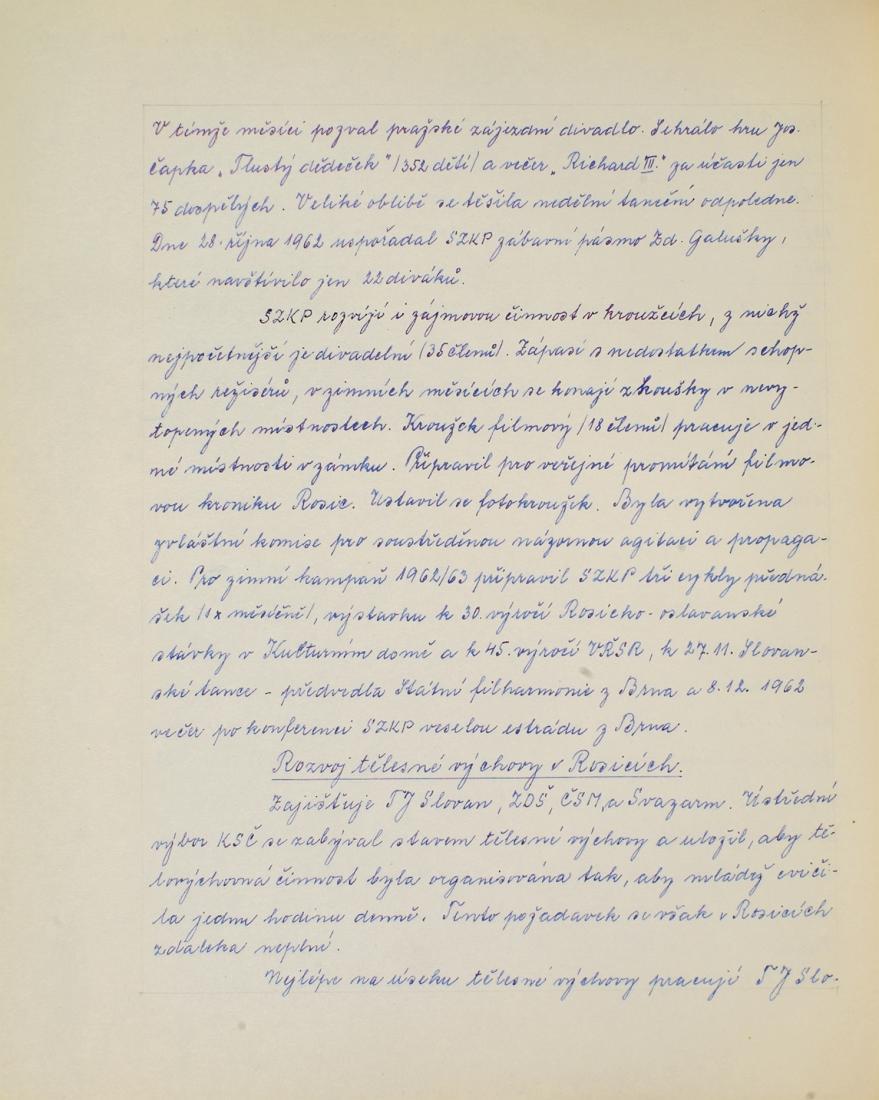 V témže měsíci pozval pražské zájezdní divadlo. Sehrálo hru Jos.
Čapka „Tlustý dědeček" /352 dětí/ a večer „Richard III." za účasti jen
75 dospělých. Veliké oblibě se těšila nedělní taneční odpoledne.
Dne 28. října 1962 uspořádal SZKP zábavní pásmo Zd. Galušky,
které navštívilo jen 22 diváků.
SZKP rozvíjí i zájmovou činnost v kroužcích, z nichž
nejpočetnější je divadelní /35 členů/. Zápasí s nedostatkem schop-
ných režisérů, v zimních měsících se konají zkoušky v nevy-
topených místnostech. Kroužek filmový /18 členů/ pracuje v jed-
né místnosti v zámku. Připravil pro veřejné promítání filmo-
vou kroniku Rosic. Ustavil se fotokroužek. Byla vytvořena
zvláštní komise pro soustředěnou názornou agitaci a propaga-
ci. Pro zimní kampaň 1962/63 připravil SZKP tři cykly předná-
šek /1x měsíčně/, výstavku k 30. výročí Rosicko-oslavanské
stávky v Kulturním domě a k 45. výročí VŘSR, k 27.11. Slovan-
ské tance - předvedla Státní filharmonie z Brna a 8.12. 1962
večer po konferenci SZKP veselou estrádu z Brna.
Rozvoj tělesné výchovy v Rosicích.
Zajišťuje TJ Slovan, ZDŠ, ČSM, a Svazarm. Ústřední
výbor KSČ se zabýval stavem tělesné výchovy a uložil, aby tě-
lovýchovná činnost byla organisována tak, aby mládež cviči-
la jednu hodinu denně. Tento požadavek se však v Rosicích
zdaleka neplní.
Nejlépe na úseku tělesné výchovy pracují TJ Slo-